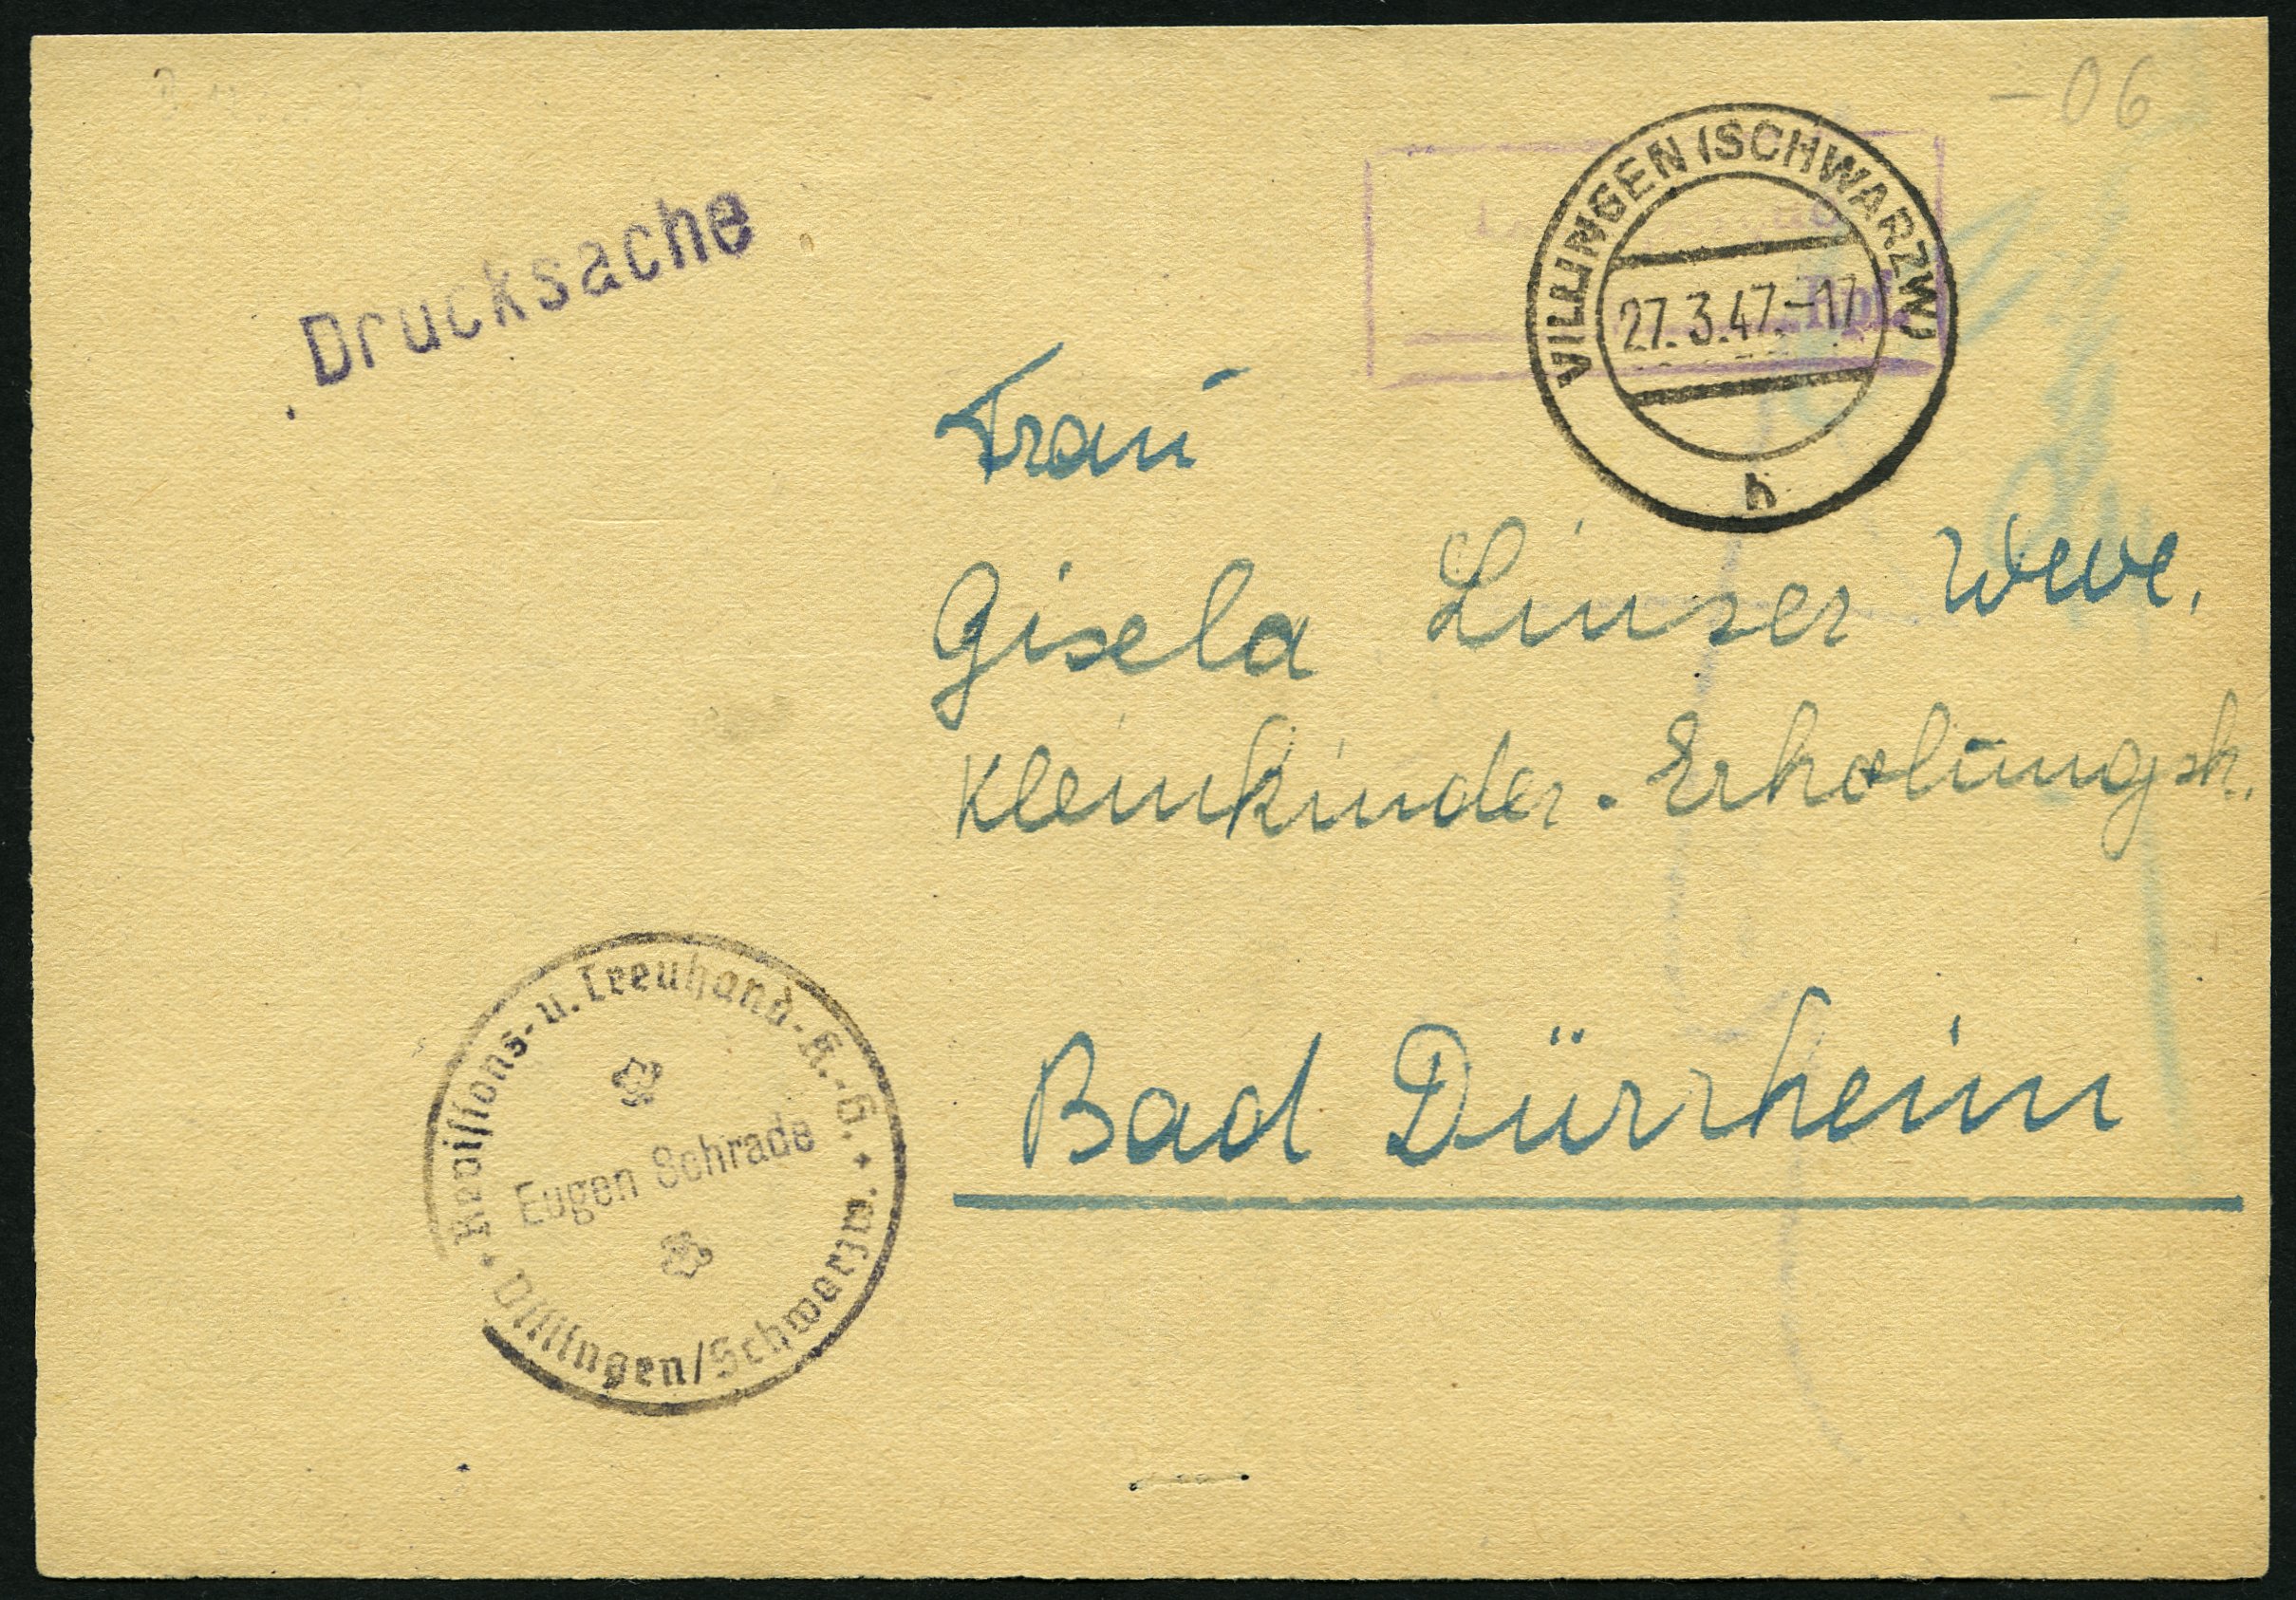 -06
Drucksache
VILLINGEN (SCHWARZW)
27.3.47.-17
h
Rpf
Frau
Gisela Linser Wwe.
Kleinkinder-Erholungsh.
Bad Dürrheim
Revisions-u.Treuhand-K.-G.
Eugen Schrade
Villingen/Schwarzw.